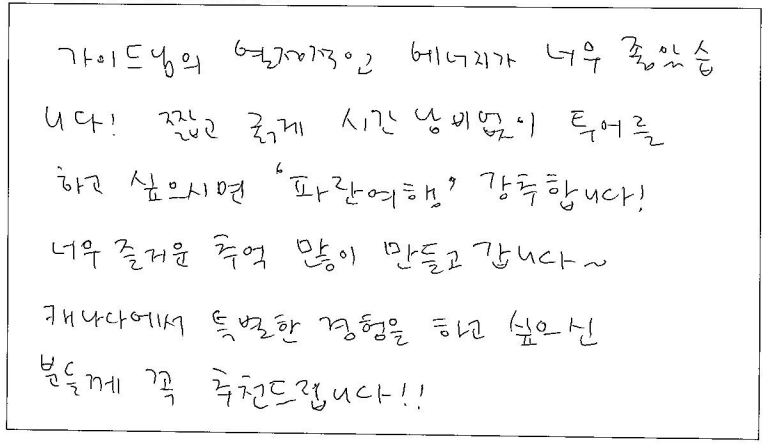 가이드님의 열정적인 에너지가 너무 좋았습
니다! 짧고 굵게 시간 낭비없이 투어를
하고 싶으시면 '파란여행' 강추합니다!
너무 즐거운 추억 많이 만들고 갑니다~
캐나다에서 특별한 경험을 하고 싶으신
분들께 꼭 추천드립니다!!